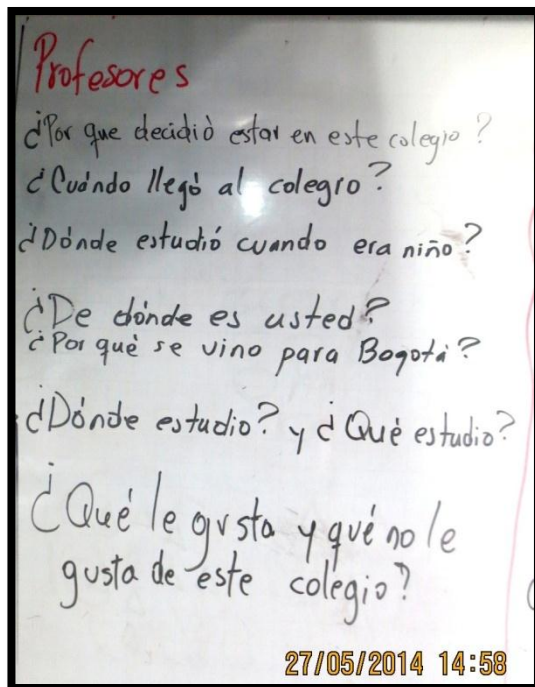 Profesores
¿Por que decidió estar en este colegio?
¿Cuándo llegó al colegro?
¿Dónde estudió cuando era niño?
¿De dónde es usted?
¿Por qué se vino para Bogotá?
¿Dónde estudio? y ¿Qué estudio?
¿Qué le gusta y qué no le
gusta de este colegio?
27/05/2014 14:58